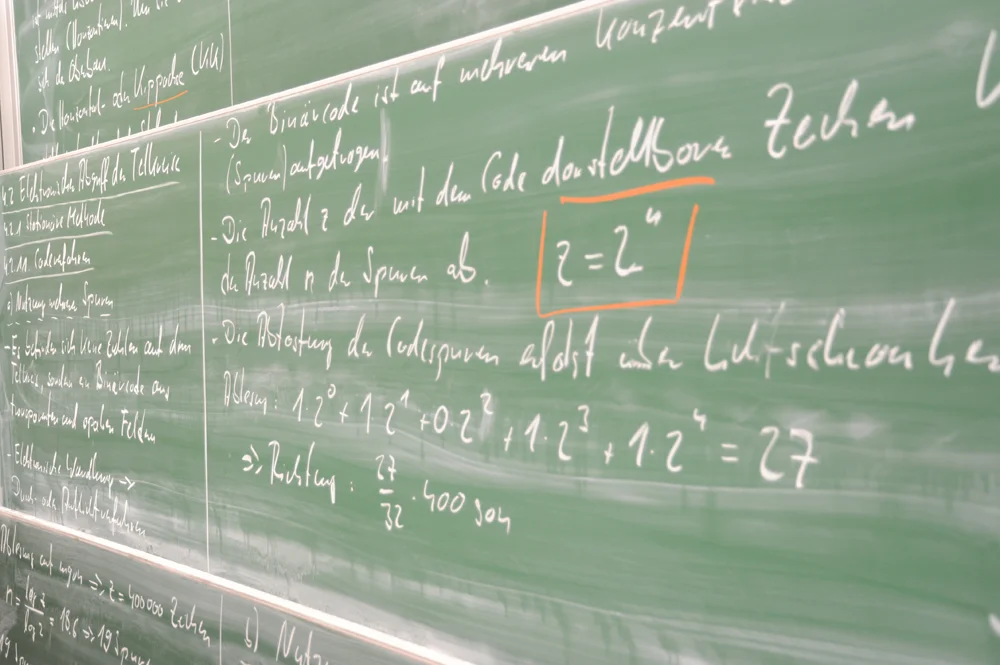 stellen (Horizontieren).
· Die Horizontal- oder Kippachse (KK)
4.2 Elektronischer Abgriff der Teilkreise
4.2.1 Stationäre Methode
4.2.1.1 Codeverfahren
a) Nutzung mehrerer Spuren
- Es befinden sich keine Zahlen auf dem
Teilkreis, sondern ein Binärcode aus
transparenten und opaken Feldern
- Elektronische Wandlung →
Durch- oder Auflichtverfahren
- Der Binärcode ist auf mehreren
(Spuren) aufgetragen
- Die Anzahl z der mit dem Code darstellbaren Zeichen
der Anzahl n der Spuren ab.
z = 2ⁿ
- Die Abtastung der Codespuren erfolgt über Lichtschranken
Ablesung: 1·2⁰ + 1·2¹ + 0·2² + 1·2³ + 1·2⁴ = 27
⇒ Richtung: 27/32 · 400 gon
Ablesung auf mgon ⇒ z = 400000 Zeichen
n = log z / log 2 = 18,6 ⇒ 19 Spuren
b)